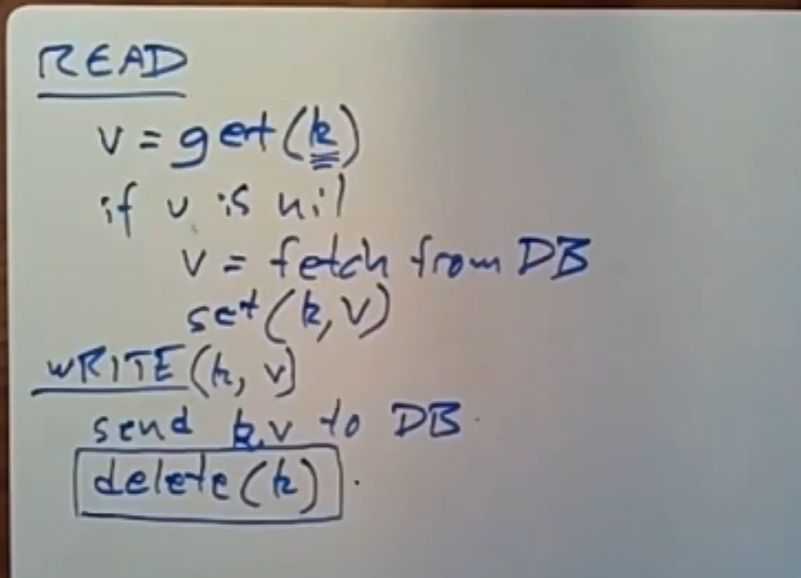 READ
v = get(k)
if v is nil
v = fetch from DB
set(k, v)
WRITE(k, v)
send k,v to DB.
delete(k).